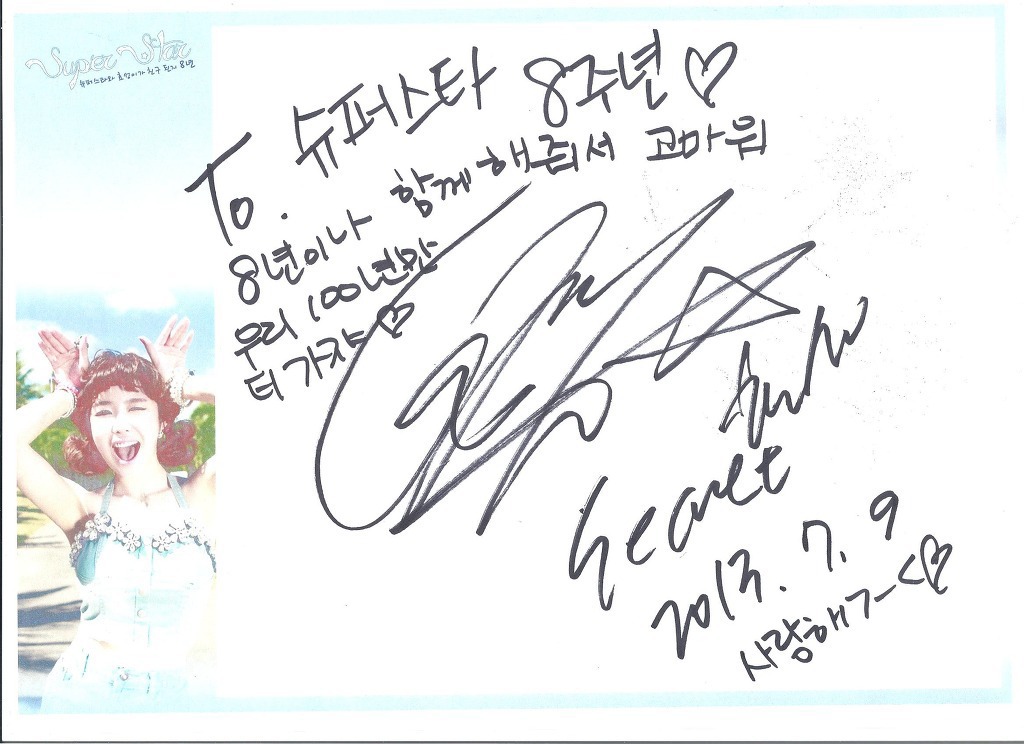 Super Star
슈퍼스타와 효성이가 친구 된지 8년
To. 슈퍼스타 8주년 ♡
8년이나 함께해줘서 고마워
우리 100년만
더 가자 ♡
Secret
2013. 7. 9
사랑해 7-<♡